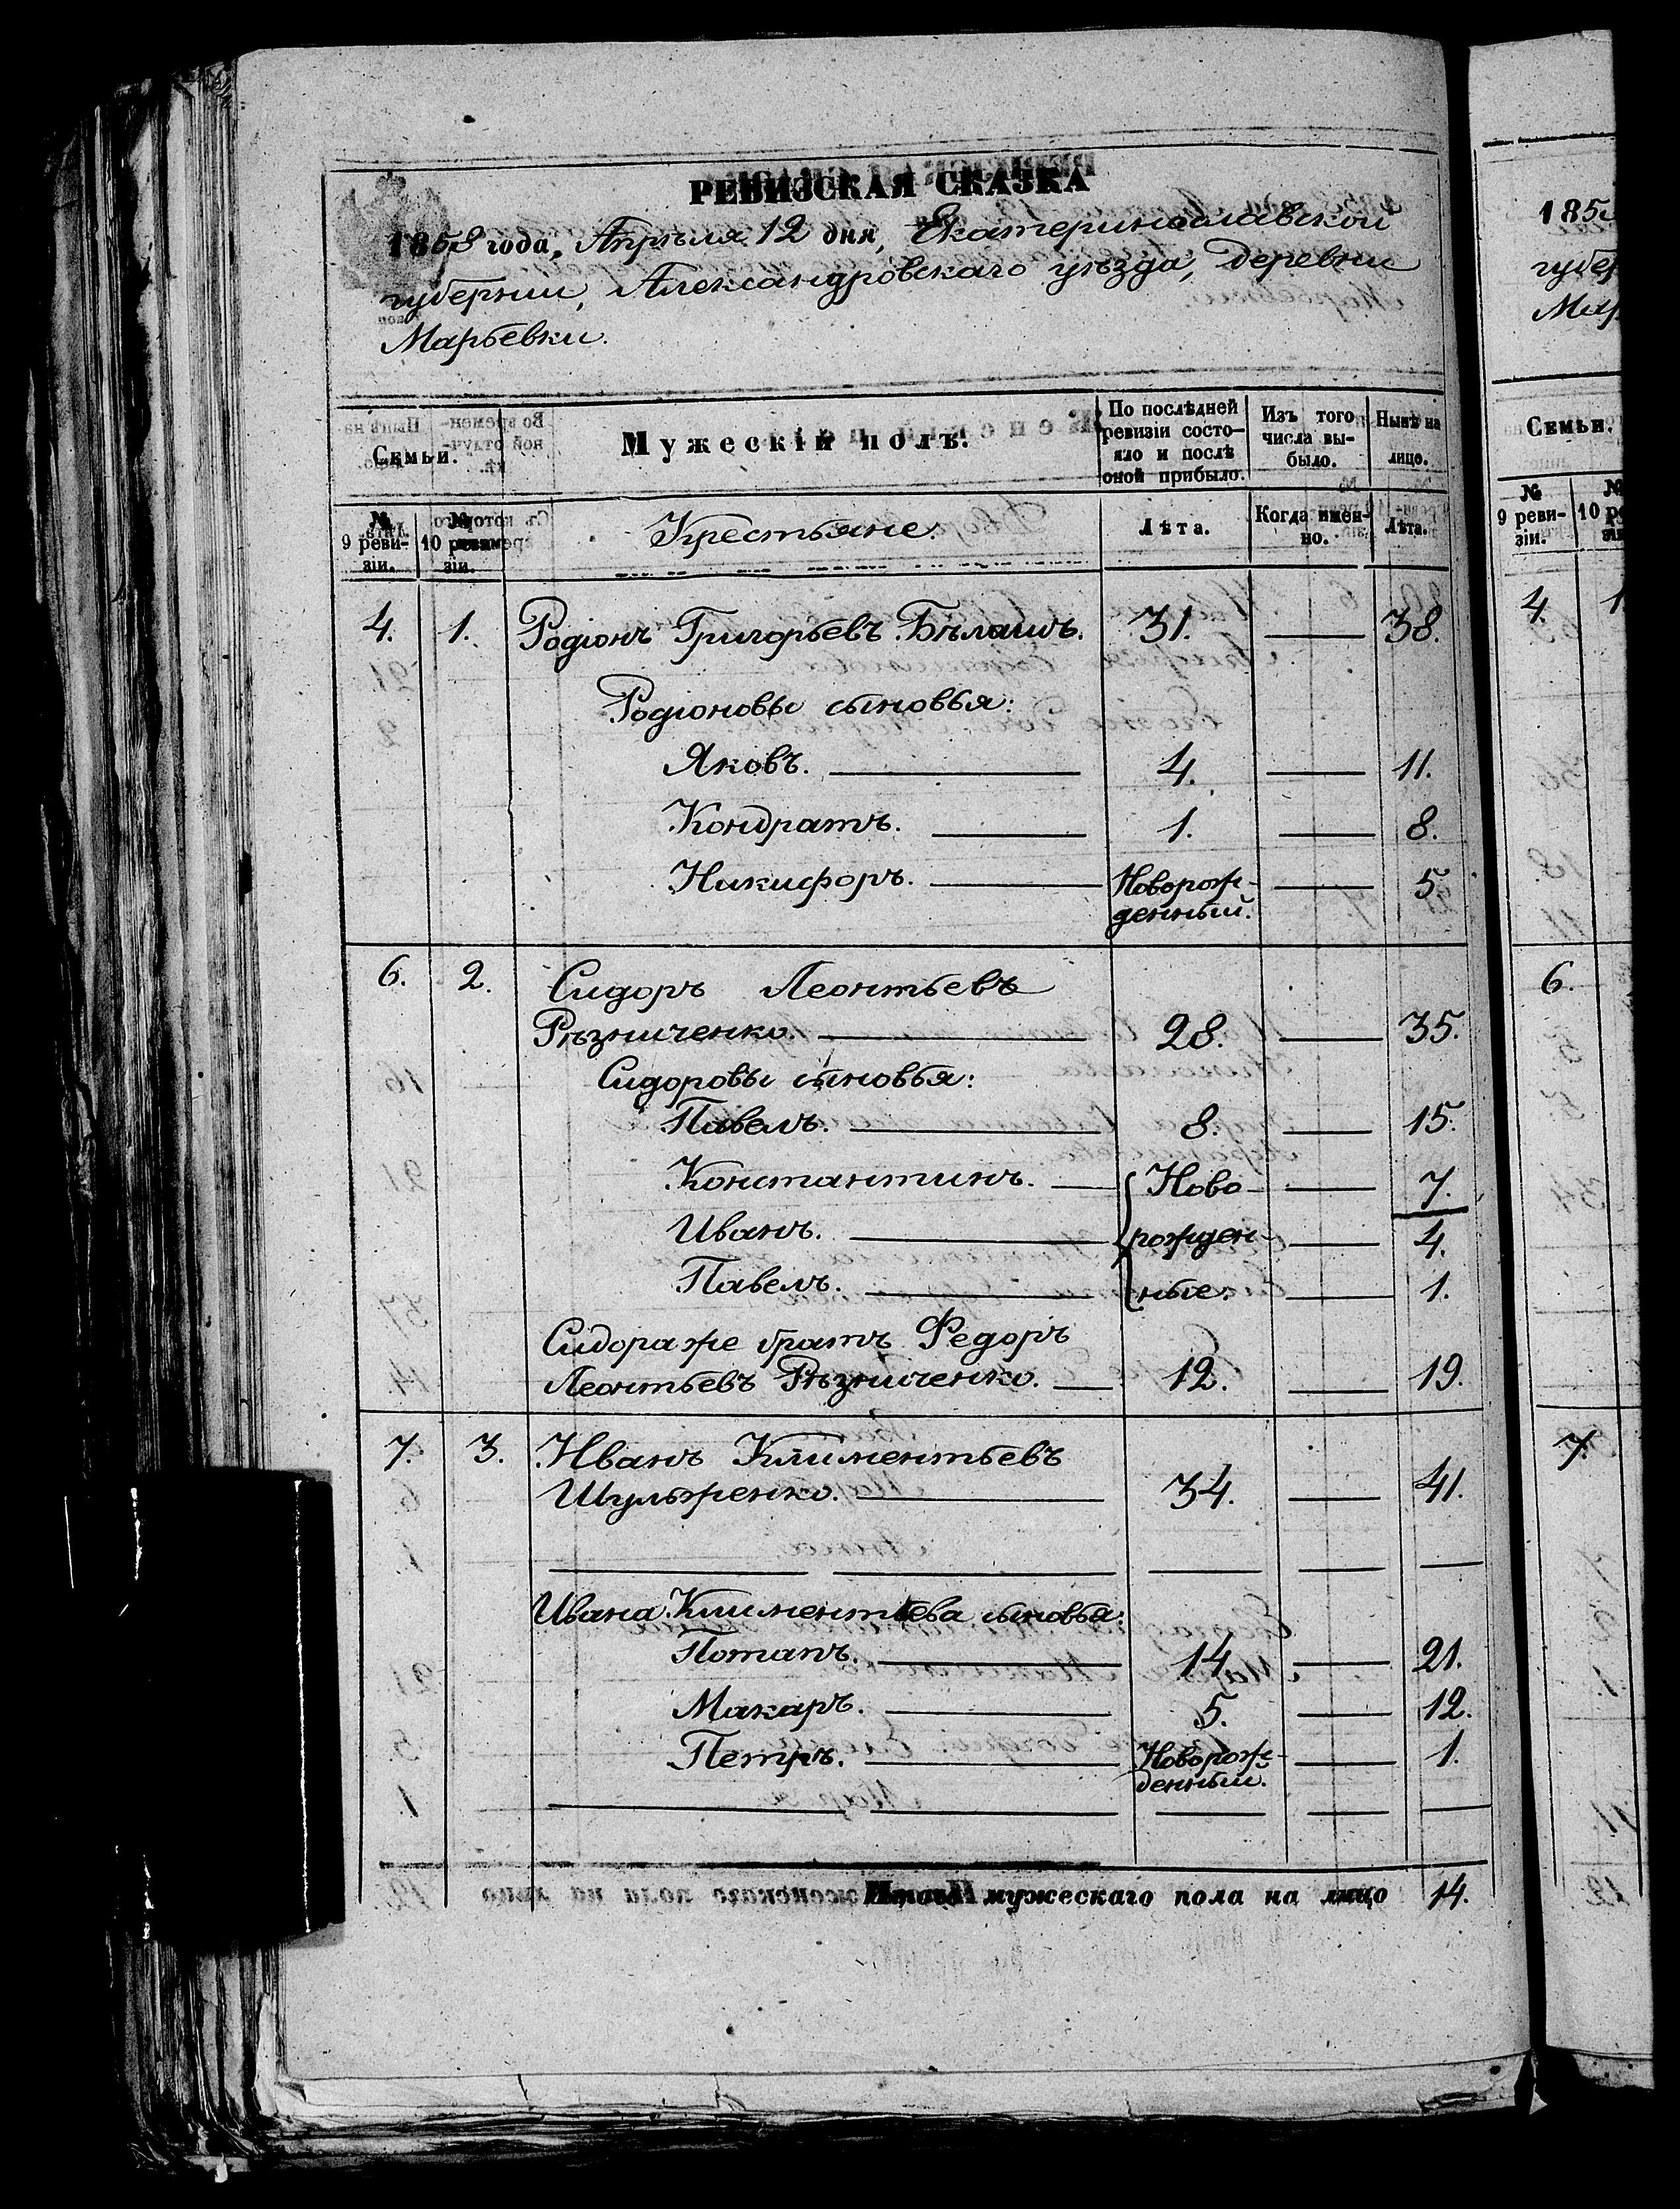 РЕВИЗСКАЯ СКАЗКА
1858 года, Апрѣля 12 дня, Екатеринославской
губерніи, Александровскаго уѣзда, деревни
Марьевки.
Семьи. Мужескій полъ. По послѣдней ревизіи состо- яло и послѣ оной прибыло. Изъ того числа вы- было. Нынѣ на лицо.
№ 9 реви- зіи. № 10 реви- зіи. Крестьяне. Лѣта. Когда имен- но. Лѣта.
4. 1. Родіонъ Григорьевъ Бѣлашъ. 31. — 38.
Родіоновы сыновья:
Яковъ. — 4. — 11.
Кондратъ. — 1. — 8.
Никифоръ. — Новорож- — 5.
денный.
6. 2. Сидоръ Леонтьевъ
Рѣзниченко. — 28. — 35.
Сидоровы сыновья:
Павелъ. — 8. — 15.
Константинъ. — Ново- — 7.
Иванъ. — рожден- — 4.
Павелъ. — ные. — 1.
Сидора же братъ Федоръ
Леонтьевъ Рѣзниченко. — 12. — 19.
7. 3. Иванъ Климентьевъ
Шульженко. — 34. — 41.
Ивана Климентьева сыновья:
Потапъ. — 14 — 21.
Макаръ. — 5. — 12.
Петръ. — Новорож- — 1.
денный.
Итого мужескаго пола на лицо 14.
185
губер
Мар
Семьи.
№ 9 реви- зіи. № 10 ре
4. 1
6.
7.